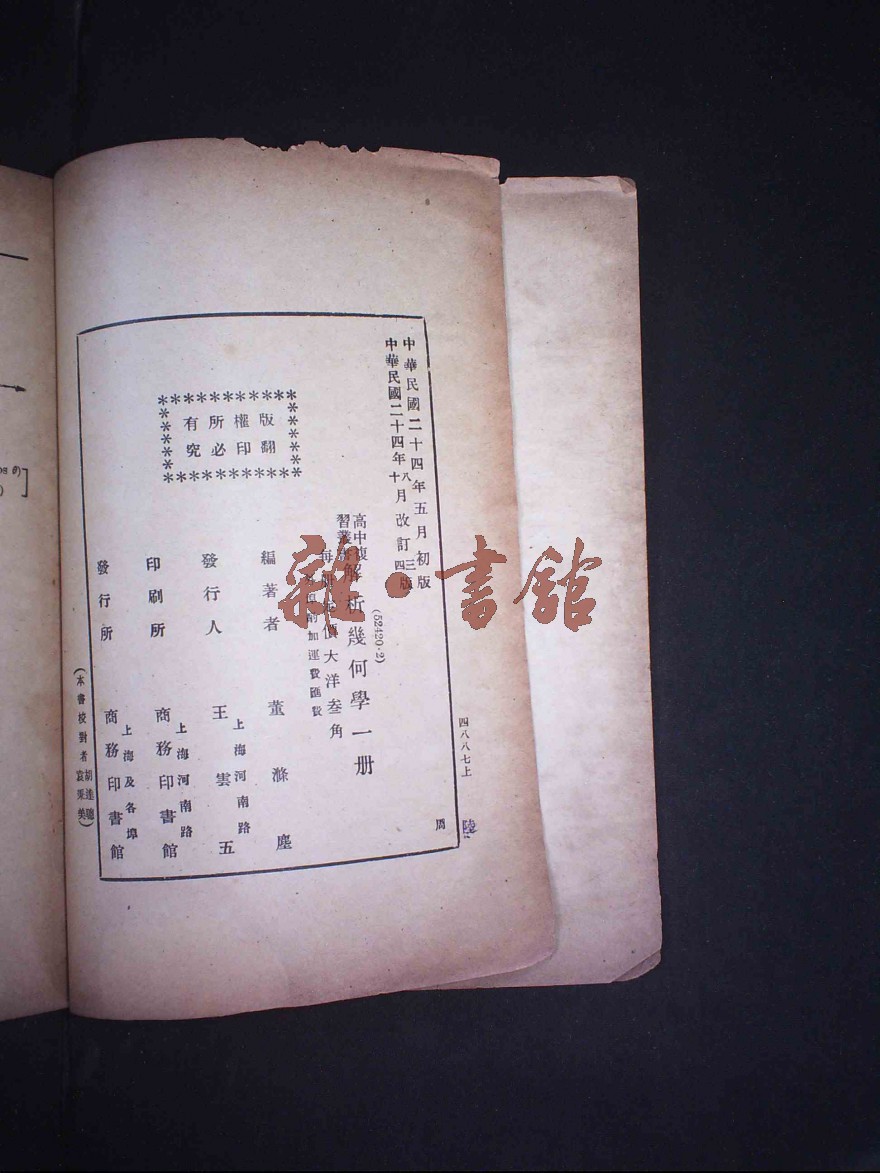 中華民國二十四年五月初版
中華民國二十四年十八月改訂四三版
(52420·2)
高中復習叢書
解析幾何學一册
每册定價大洋叁角
加運費匯費
編著者 董滌塵
上海河南路
發行人 王雲五
上海河南路
印刷所 商務印書館
上海及各埠
發行所 商務印書館
(本書校對者胡達聰 袁秉美)
版權所有
翻印必究
四八八七上
周
陸
雜·書館